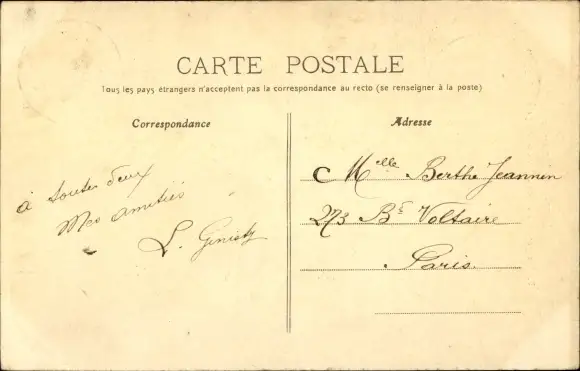 CARTE POSTALE
Tous les pays étrangers n'acceptent pas la correspondance au recto (se renseigner à la poste)
Correspondance
à toutes deux
Mes amitiés
L. Genisty
Adresse
C Melle Berthe Jeannin
273 Bd Voltaire
Paris.